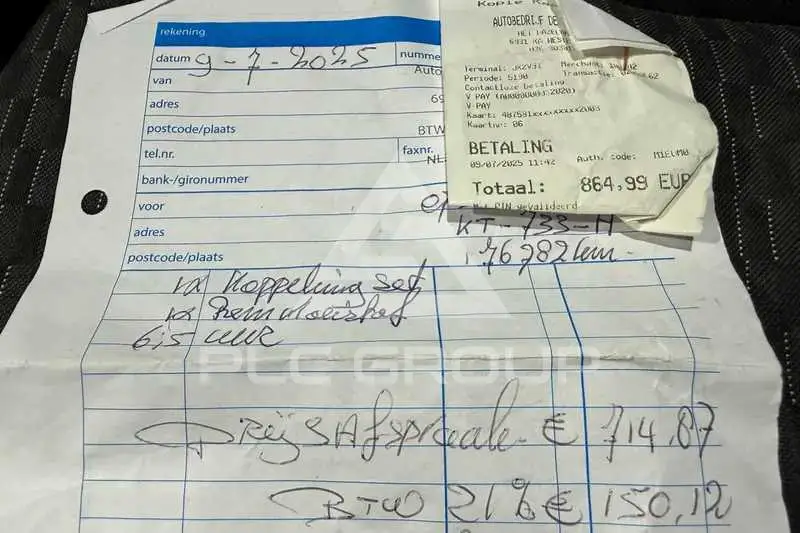 Kopie K
AUTOBEDRIJF DE
6931 KA WEST
Terminal: Merchant:
Periode: 5190 Transactie:
Contactloze betaling
V PAY (A0000000032020)
V PAY
Kaart: 487591xxxxxxxxx2003
Kaartnr: 06
BETALING
09/07/2025 11:42 Auth. code: M1EUM0
Totaal: 864,99 EUR
PIN gevalideerd
rekening
datum 9-7-2025 numme
van Auto
adres 69
postcode/plaats BTW
tel.nr. faxnr. NL
bank-/gironummer
voor
adres KT-733-H
postcode/plaats 176782 km
1x Koppeling set
1x Remvloeistof
6,5 uur
PLC GROUP
Prijs Afspraak € 714,87
BTW 21% € 150,12